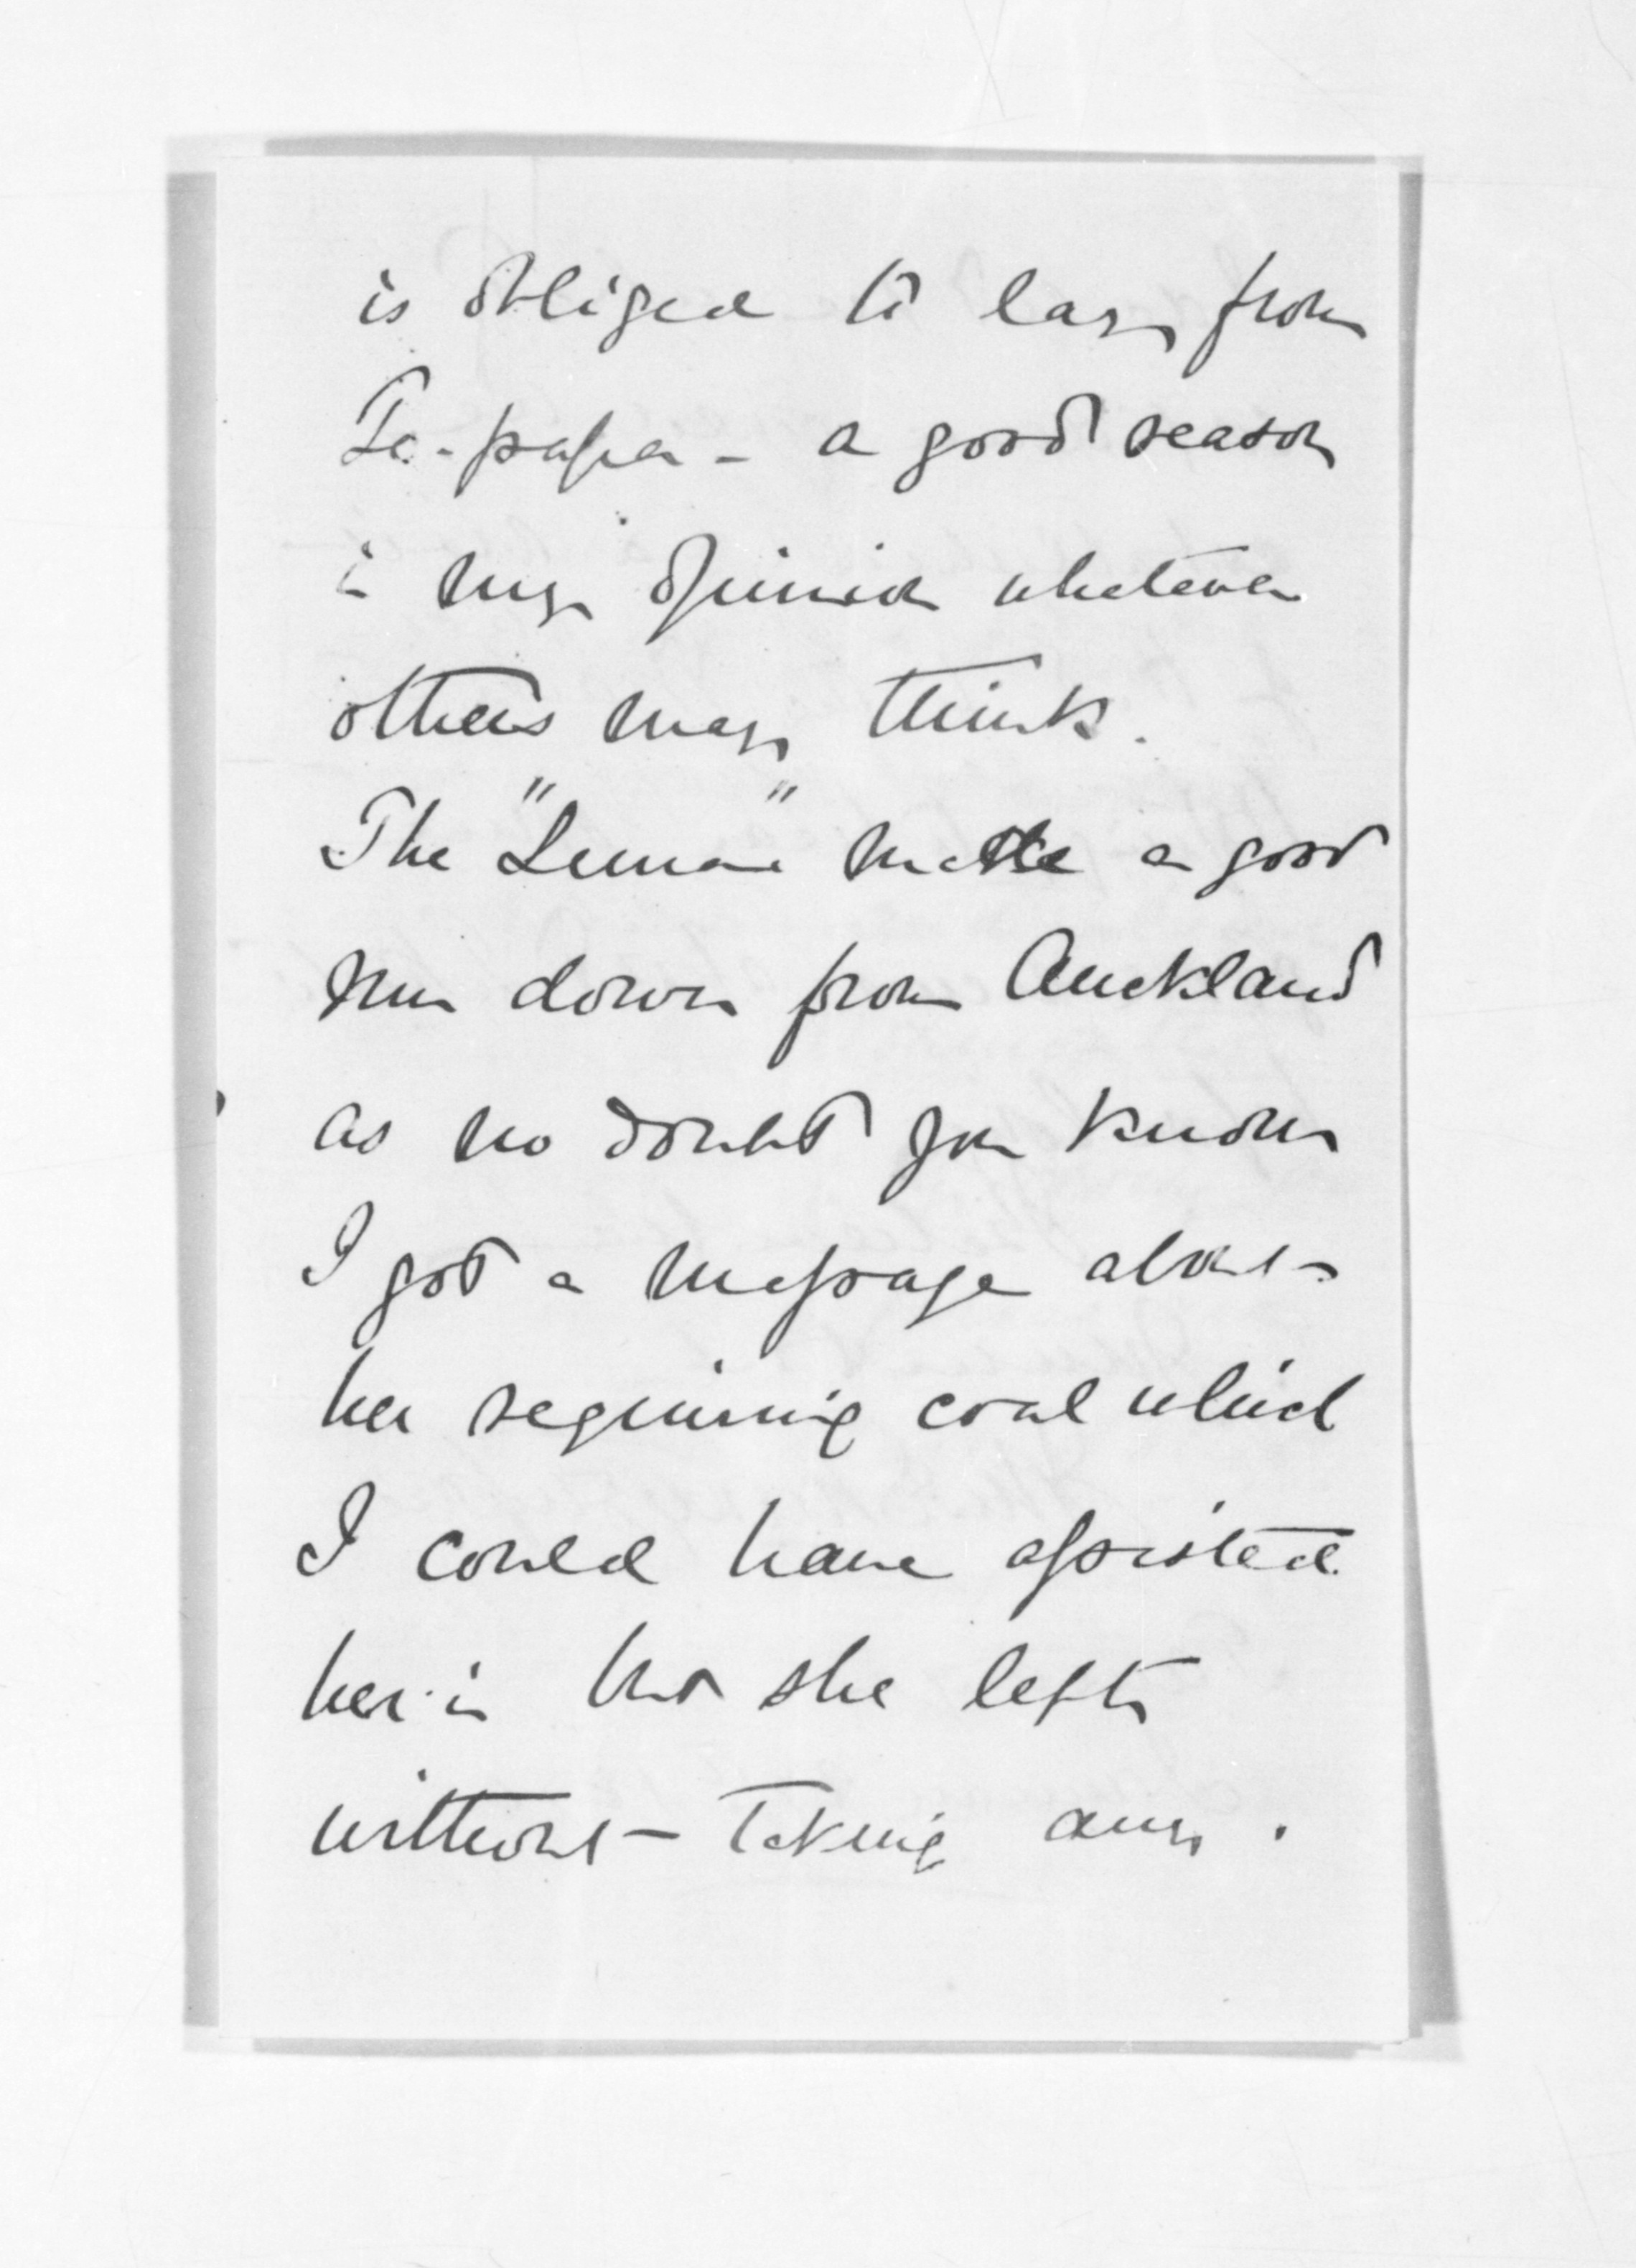 is obliged to lay from
Te-papa - a good reason
in my opinion whatever
others may think.
The "Luna" made a good
run down from Auckland
as no doubt you know
I got a message about
her requiring coal which
I could have assisted
her in but she left
without taking any.